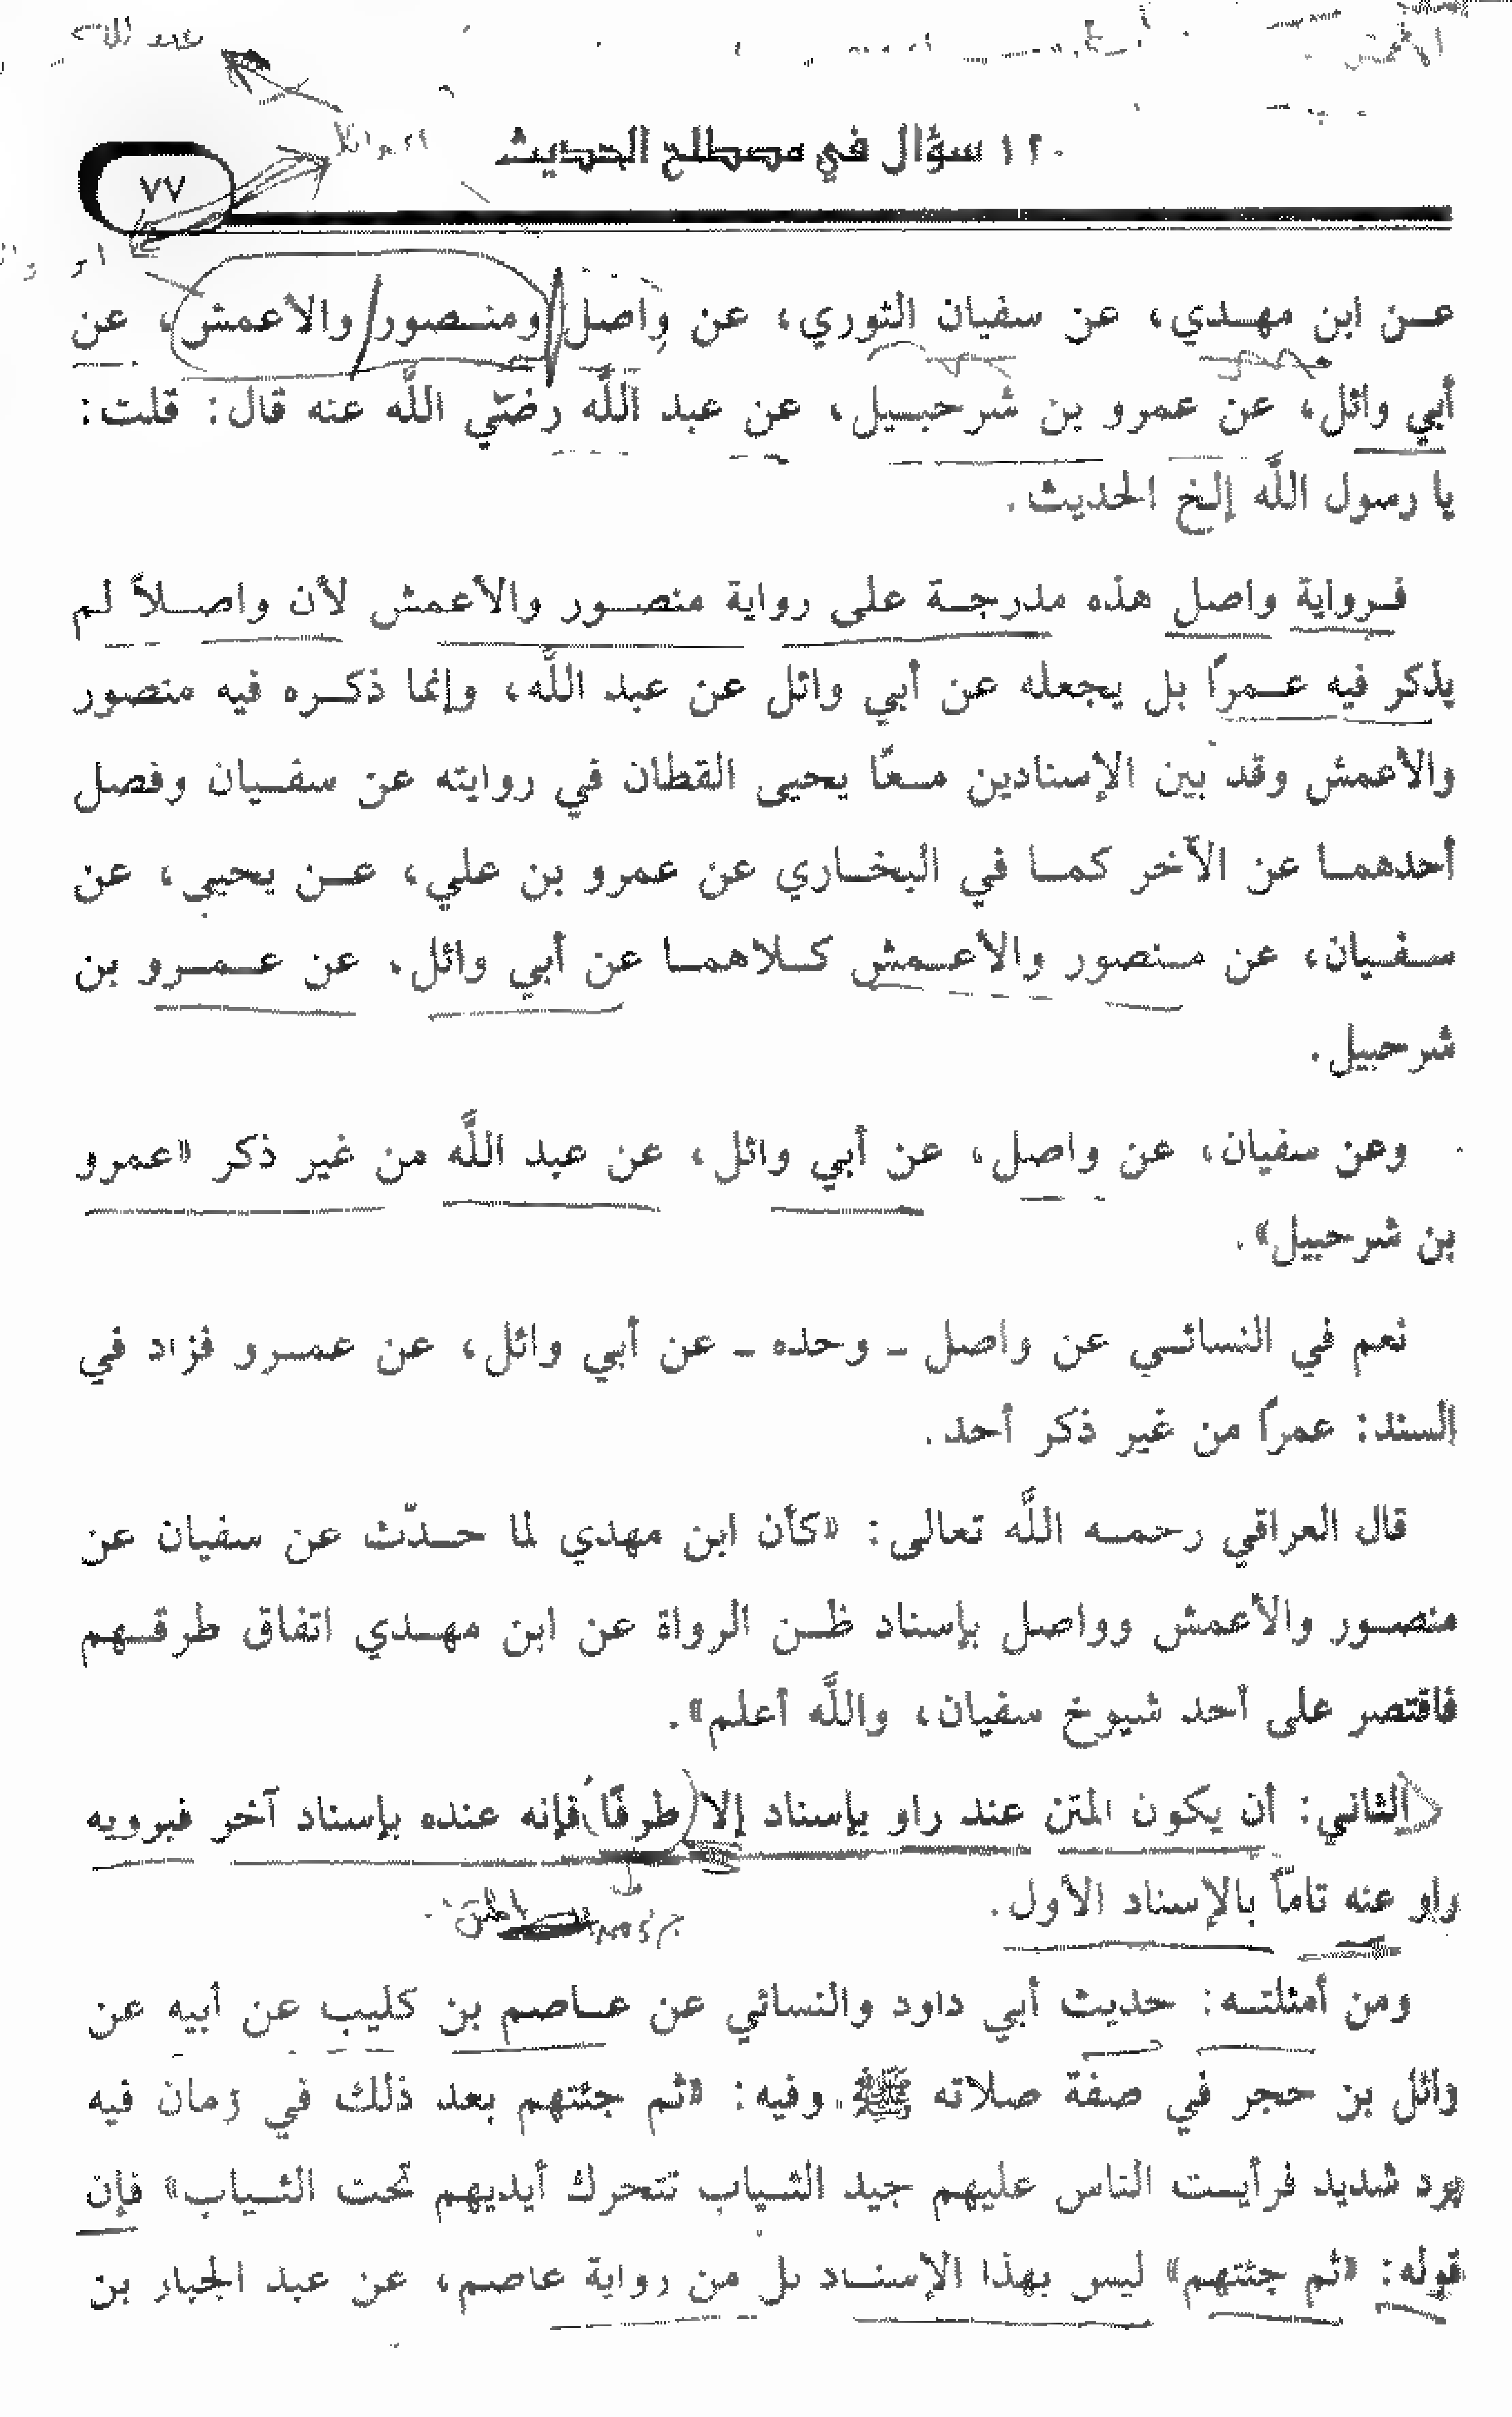 ١٢٠ سؤال في مصطلح الحديث
٧٧
عن ابن مهدي، عن سفيان الثوري، عن واصل ومنصور والأعمش، عن
أبي وائل، عن عمرو بن شرحبيل، عن عبد اللَّه رضي اللَّه عنه قال: قلت:
يا رسول اللَّه إلخ الحديث.
فرواية واصل هذه مدرجة على رواية منصور والأعمش لأن واصلاً لم
يذكر فيه عمرًا بل يجعله عن أبي وائل عن عبد اللَّه، وإنما ذكره فيه منصور
والأعمش وقد بين الإسنادين معًا يحيى القطان في روايته عن سفيان وفصل
أحدهما عن الآخر كما في البخاري عن عمرو بن علي، عن يحيى، عن
سفيان، عن منصور والأعمش كلاهما عن أبي وائل، عن عمرو بن
شرحبيل.
وعن سفيان، عن واصل، عن أبي وائل، عن عبد اللَّه من غير ذكر «عمرو
بن شرحبيل».
نعم في النسائي عن واصل ـ وحده ـ عن أبي وائل، عن عمرو فزاد في
السند: عمرًا من غير ذكر أحد.
قال العراقي رحمه اللَّه تعالى: «كأن ابن مهدي لما حدّث عن سفيان عن
منصور والأعمش وواصل بإسناد ظن الرواة عن ابن مهدي اتفاق طرقهم
فاقتصر على أحد شيوخ سفيان، واللَّه أعلم».
الثاني: أن يكون المتن عند راو بإسناد إلا (طرفًا) فإنه عنده بإسناد آخر فيرويه
راو عنه تاماً بالإسناد الأول.
المتن
ومن أمثلته: حديث أبي داود والنسائي عن عاصم بن كليب عن أبيه عن
وائل بن حجر في صفة صلاته ﷺ. وفيه: «ثم جئتهم بعد ذلك في زمان فيه
برد شديد فرأيت الناس عليهم جيد الثياب تتحرك أيديهم تحت الثياب» فإن
قوله: «ثم جئتهم» ليس بهذا الإسناد بل من رواية عاصم، عن عبد الجبار بن